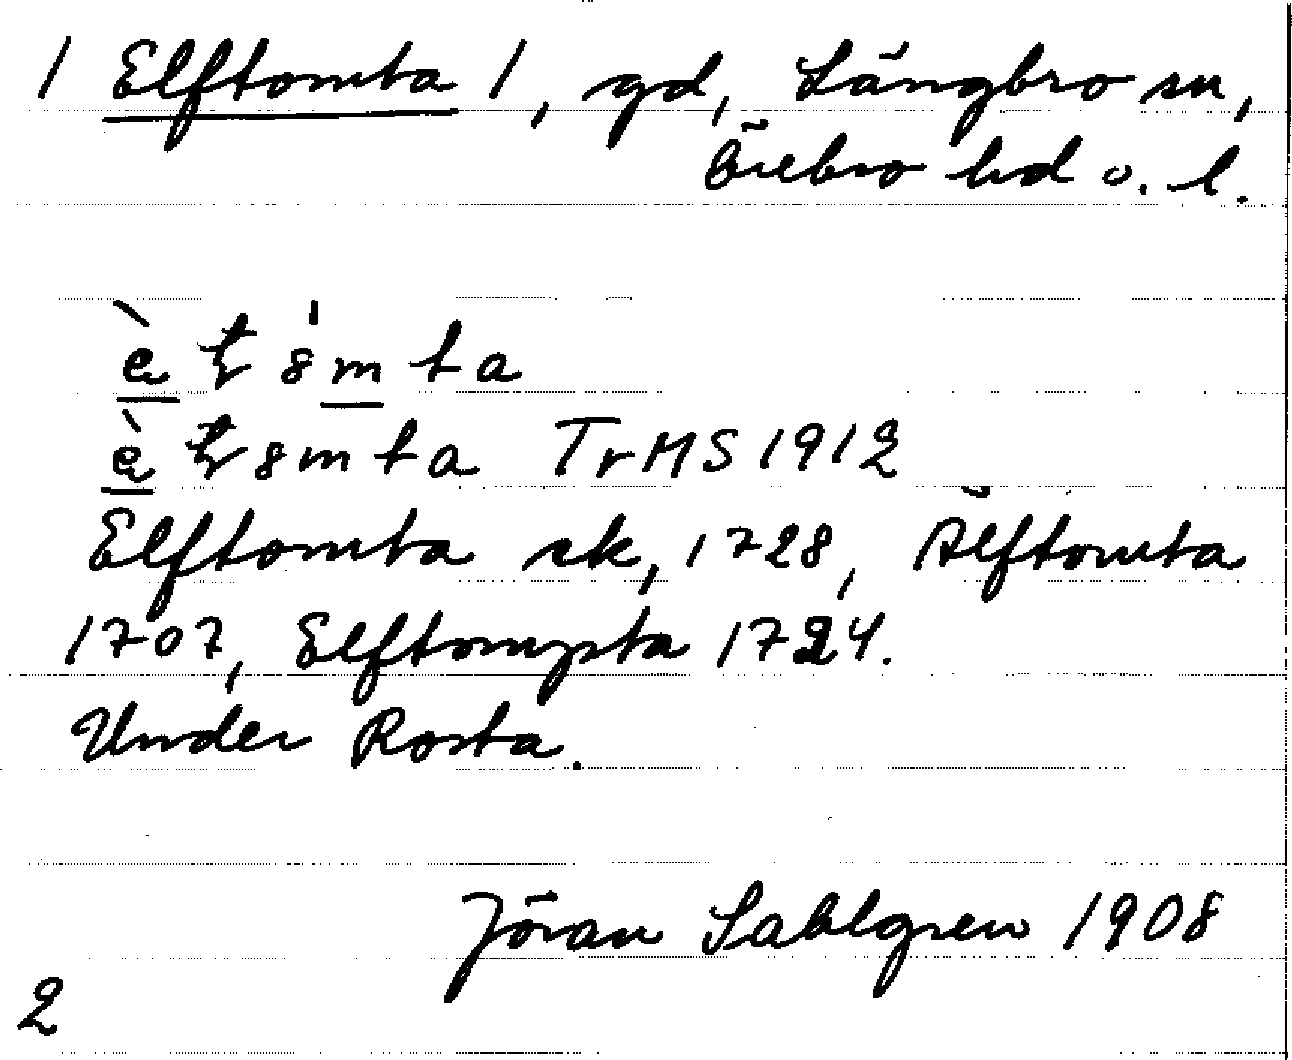 / Elftomta /, gd, Längbro sn,
Örebro hd o. l.
TrHS 1912
Elftomta sk, 1728, Älftomta
1707, Elftompta 1724.
Under Rosta.
Jöran Sahlgren 1908
2